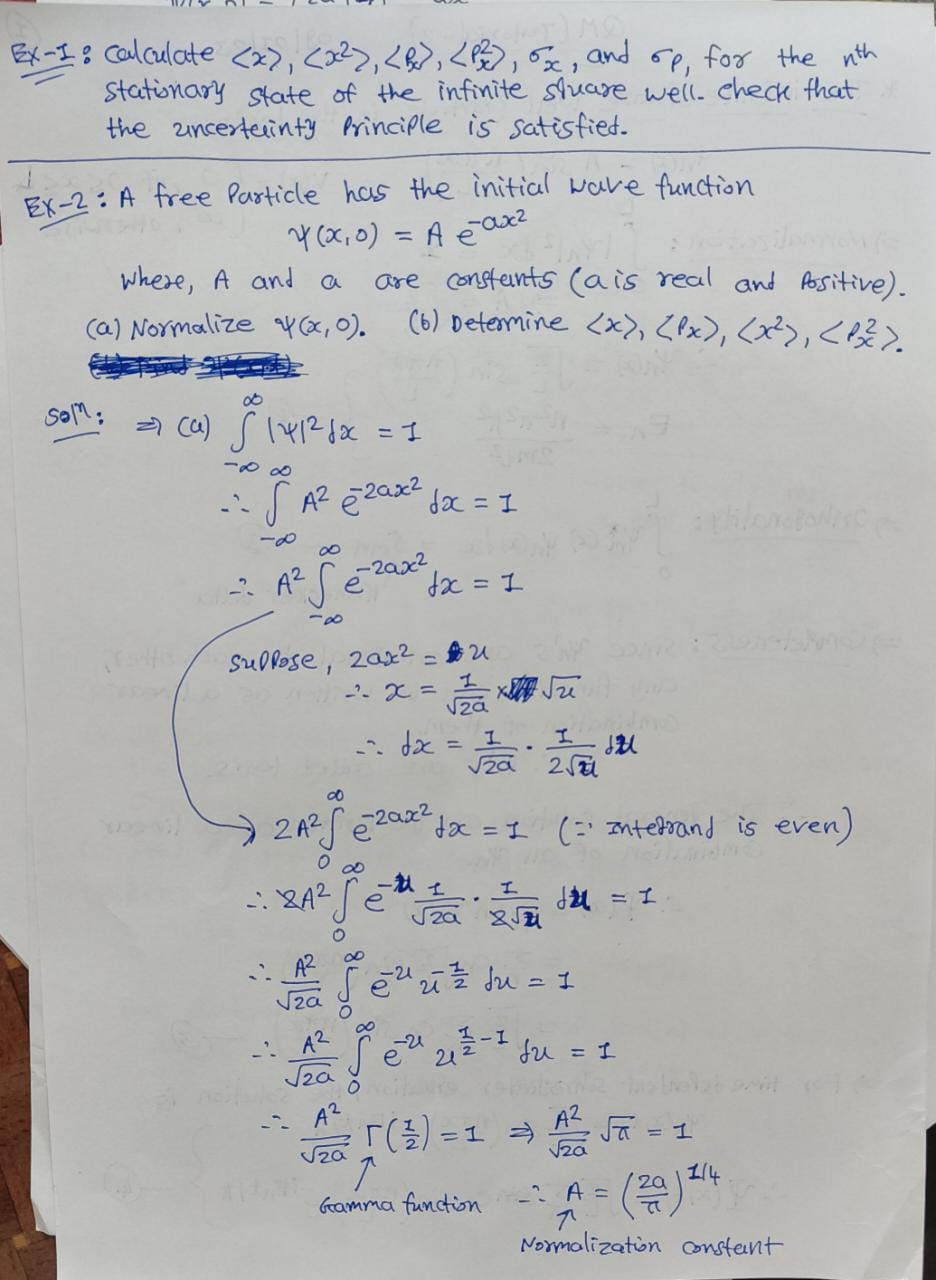 Ex-1: Calculate <x>, <x²>, <Px>, <Px²>, σx, and σp, for the nth
stationary state of the infinite square well. check that
the uncertainty Principle is satisfied.
Ex-2: A free Particle has the initial wave function
Ψ(x,0) = A e^{-ax²}
where, A and a are constants (a is real and Positive).
(a) Normalize Ψ(x,0). (b) Determine <x>, <Px>, <x²>, <Px²>.
Soln: ⇒ (a) ∫_{-∞}^{∞} |Ψ|² dx = 1
∴ ∫_{-∞}^{∞} A² e^{-2ax²} dx = 1
∴ A² ∫_{-∞}^{∞} e^{-2ax²} dx = 1
suppose, 2ax² = u
∴ x = 1/√2a × √u
∴ dx = 1/√2a · 1/2√u du
→ 2A² ∫_{0}^{∞} e^{-2ax²} dx = 1 (∵ integrand is even)
∴ 2A² ∫_{0}^{∞} e^{-u} 1/√2a · 1/2√u du = 1
∴ A²/√2a ∫_{0}^{∞} e^{-u} u^{-1/2} du = 1
∴ A²/√2a ∫_{0}^{∞} e^{-u} u^{1/2-1} du = 1
∴ A²/√2a Γ(1/2) = 1 ⇒ A²/√2a √π = 1
Gamma function ∴ A = (2a/π)^{1/4}
Normalization constant